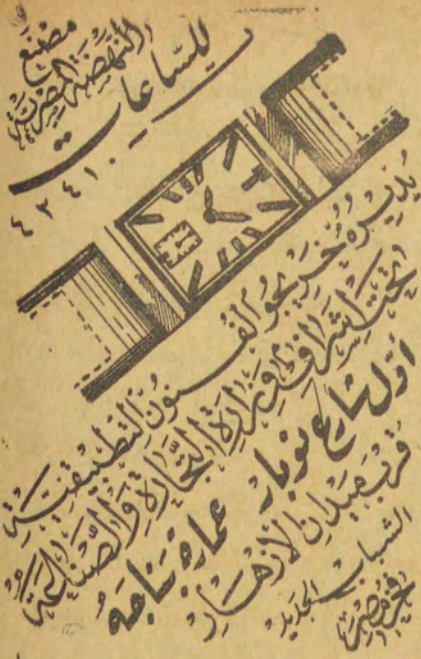 مصنع
النهضة المصرية
للساعات
٤٢٤١٠
يديره خريجو الفنون التطبيقية
تحت إشراف وزارة التجارة والصناعة
أول شارع نوبار عمارة بناجه
قرب ميدان الأزهار
الشباب الجديد
فخر مصر